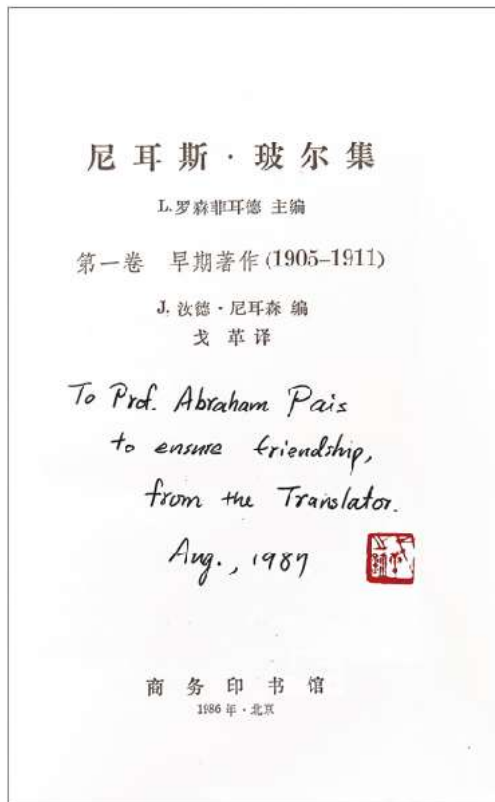 尼耳斯·玻尔集
L.罗森菲耳德 主编
第一卷 早期著作(1905–1911)
J.汝德·尼耳森 编
戈革译
To Prof. Abraham Pais
to ensure friendship,
from the Translator.
Aug., 1987
商务印书馆
1986年·北京